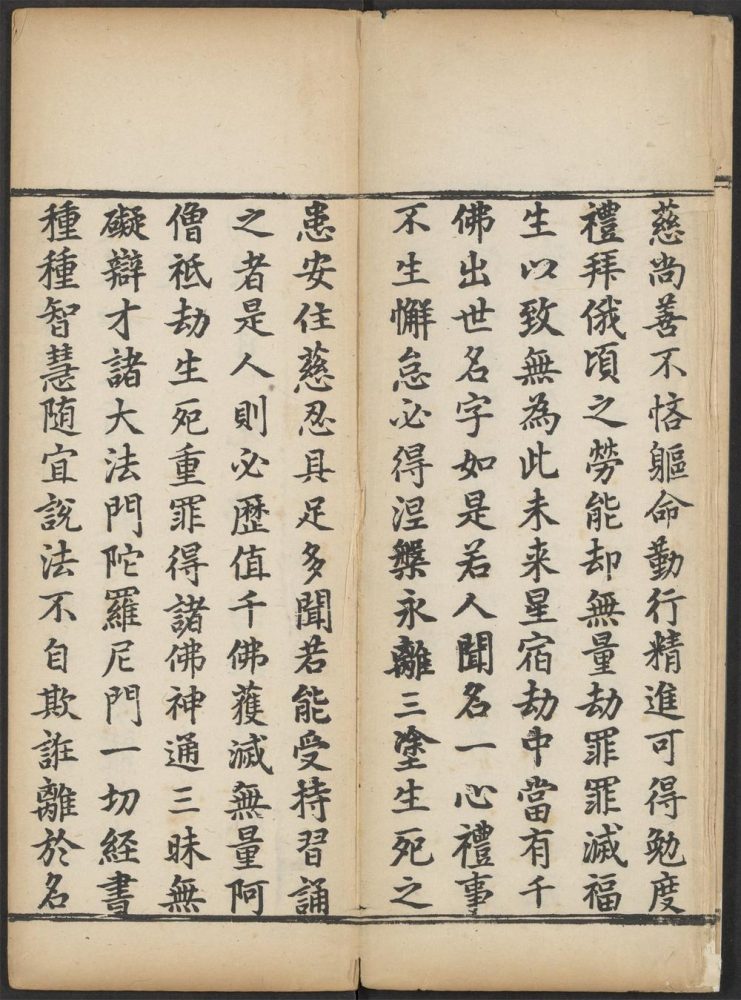 慈尚善不悋軀命勤行精進可得勉度
禮拜俄頃之勞能却無量劫罪罪滅福
生以致無為此未来星宿劫中當有千
佛出世名字如是若人聞名一心禮事
不生懈怠必得涅槃永離三塗生死之
患安住慈忍具足多聞若能受持習誦
之者是人則必歷值千佛獲滅無量阿
僧祇劫生死重罪得諸佛神通三昧無
礙辯才諸大法門陀羅尼門一切經書
種種智慧随宜說法不自欺誑離於名